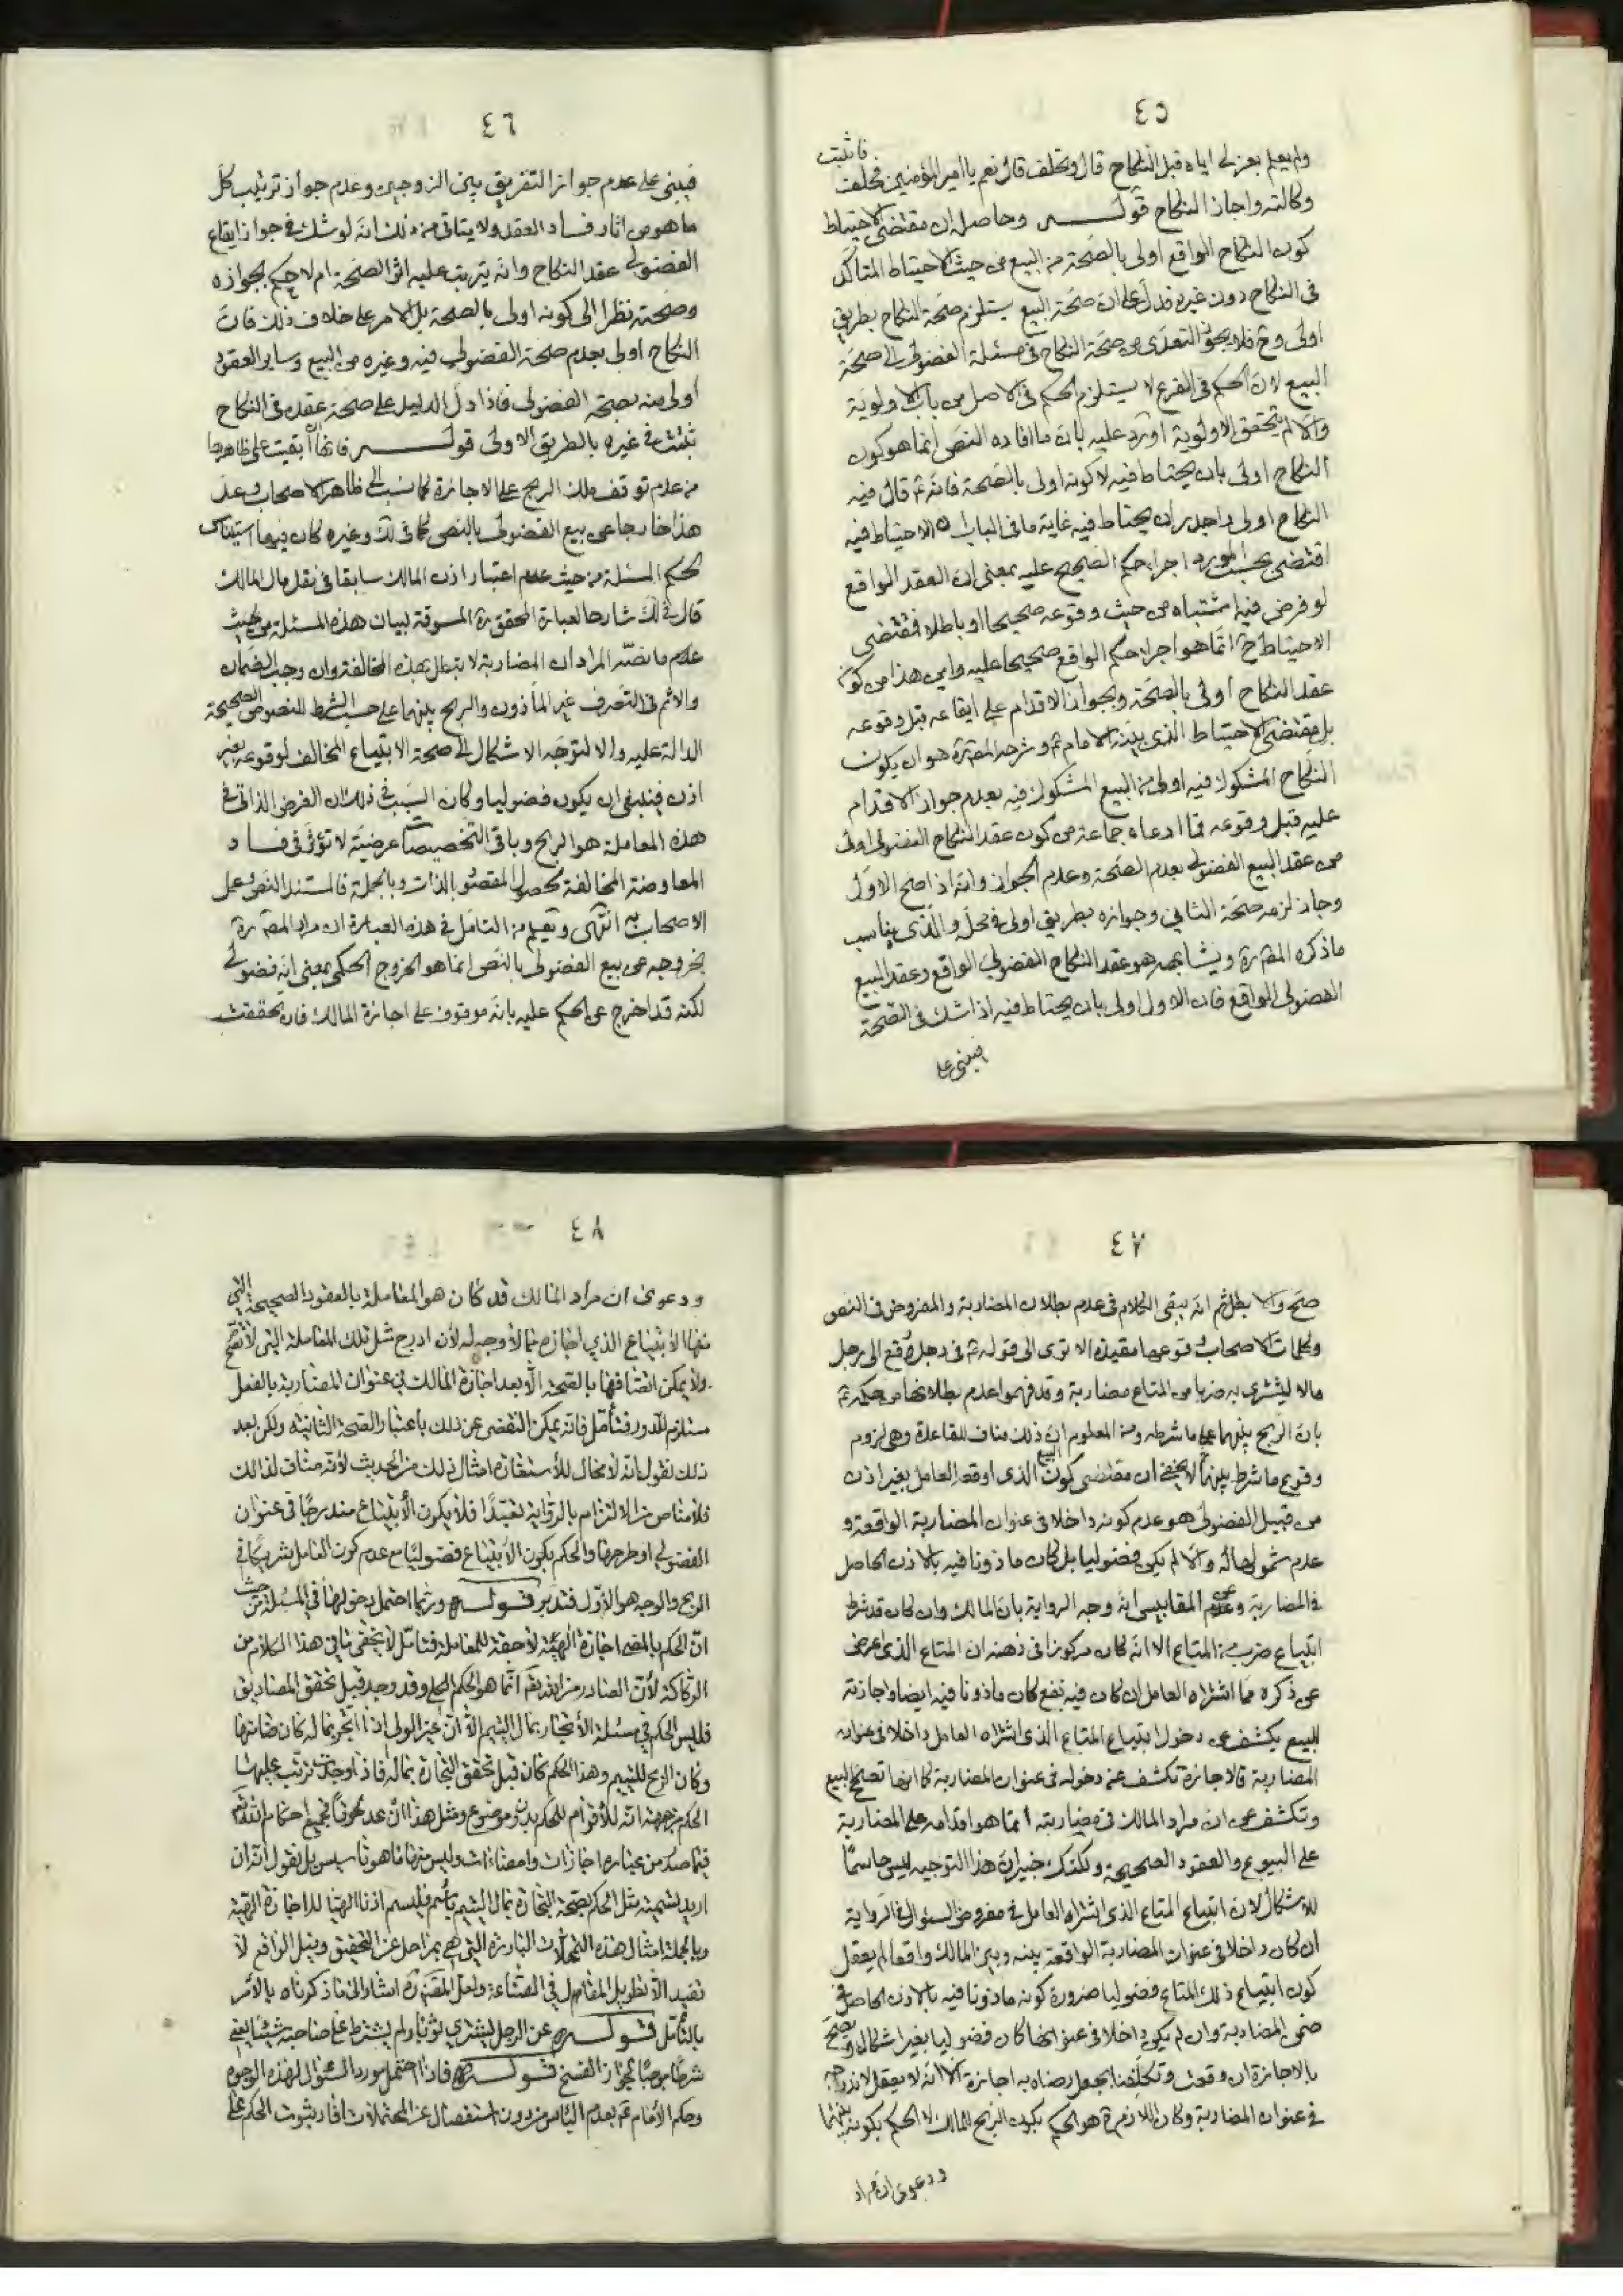 ٤٥
ولم يعلم بعزلى اياه قبل النكاح قال وتحلف قال نعم يا امير المؤمنين فحلف فاثبت
وكالته واجاز النكاح قوله وحاصله ان مقتضى الاحتياط
كون النكاح الواقع اولى بالصحة من البيع من حيث الاحتياط المتأكد
فى النكاح دون غيره فدل على ان صحة البيع يستلزم صحة النكاح بطريق
اولى وح فلا يجوز التعدى من صحة النكاح فى مسئلة الفضولى الى صحة
البيع لان الحكم فى الفرع لا يستلزم الحكم فى الاصل من باب الاولوية
والا لم يتحقق الاولوية اورد عليه بان ما افاده النص انما هو كون
النكاح اولى بان يحتاط فيه لا كونه اولى بالصحة فانه ع قال فيه
النكاح اولى واجدر ان يحتاط فيه غاية ما فى الباب ان الاحتياط فيه
اقتضى بحسب المورد اجراء حكم الصحيح عليه بمعنى ان العقد الواقع
لو فرض فيه اشتباه من حيث وقوعه صحيحا او باطلا فمقتضى
الاحتياط ح انما هو اجراء حكم الواقع صحيحا عليه واين هذا من كون
عقد النكاح اولى بالصحة وبجواز الاقدام على ايقاعه قبل وقوعه
بل مقتضى الاحتياط الذى بينه الامام ع وشرحه المص ره هو ان يكون
النكاح المشكوك فيه اولى من البيع المشكوك فيه بعدم جواز الاقدام
عليه قبل وقوعه فما ادعاه جماعة من كون عقد النكاح الفضولى اولى
من عقد البيع الفضولى بعدم الصحة وعدم الجواز وانه اذا صح الاول
وجاز لزمه صحة الثانى وجوازه بطريق اولى فى محله والذى يناسب
ما ذكره المص ره ويشابهه هو عقد النكاح الفضولى الواقع وعقد البيع
الفضولى الواقع فان الاول اولى بان يحتاط فيه اذا شك فى الصحة
فيبنى على
٤٦
فيبنى على عدم جواز التفريق بين الزوجين وعدم جواز ترتيب كل
ما هو من اثار فساد العقد ولا يتاتى من ذلك انه لو شك فى جواز ايقاع
الفضولى عقد النكاح وانه يترتب عليه اثر الصحة ام لا حكم بجوازه
وصحته نظرا الى كونه اولى بالصحة بل الامر على خلاف ذلك فان
النكاح اولى بعدم صحة الفضولى فيه وغيره من البيع وساير العقود
اولى منه بصحة الفضولى فاذا دل الدليل على صحة عقده فى النكاح
ثبتت فى غيره بالطريق الاولى قوله فانها ان ابقيت على ظاهرها
من عدم توقف ملك الربح على الاجازة كما نسب الى ظاهر الاصحاب وعد
هذا خارجا عن بيع الفضولى بالنص كما فى لك وغيره كان فيها استيناس
لحكم المسئلة من حيث عدم اعتبار اذن المالك سابقا فى نقل مال المالك
قال فى لك شارحا لعبارة المحقق ره المسوقة لبيان هذه المسئلة من حيث
عدم ما نصه المراد ان المضاربة لا تبطل بهذه المخالفة وان وجب الضمان
والاثم فى التصرف غير المأذون والربح بينهما على حسب الشرط للنصوص الصحيحة
الدالة عليه والا لتوجه الاشكال الى صحة الابتياع المخالف لوقوعه بغير
اذن فينبغى ان يكون فضوليا وكان السبب فى ذلك ان الغرض الذاتى فى
هذه المعاملة هو الربح وباقى التخصيصات عرضية لا تؤثر فى فساد
المعاوضة المخالفة لحصول المقصود بالذات وبالجملة فالمستند النص وعمل
الاصحاب به انتهى ويعلم من التامل فى هذه العبارة ان مراد المص ره
بخروجه عن بيع الفضولى بالنص انما هو الخروج الحكمى بمعنى انه فضولى
لكنه قد اخرج عن الحكم عليه بانه موقوف على اجازة المالك فان تحققت
٤٧
صح والا بطل ثم انه يبقى الكلام فى عدم بطلان المضاربة والمفروض فى النص
وكلمات الاصحاب وقوعها مقيدة الا ترى الى قوله ع فى رجل دفع الى رجل
مالا ليشترى به ضربا من المتاع مضاربة وقد فهموا عدم بطلانها من حكمه ع
بان الربح بينهما على ما شرطه ومن المعلوم ان ذلك مناف للقاعدة وهى لزوم
وقوع ما شرط بينهما لا يخفى ان مقتضى كون البيع الذى اوقعه العامل بغير اذن
من قبيل الفضولى هو عدم كونه داخلا فى عنوان المضاربة الواقعة و
عدم شمولها له والا لم يكن فضوليا بل كان ماذونا فيه بالاذن الحاصل
فى المضاربة وعن المقابيس انه وجه الرواية بان المالك وان كان قد شرط
ابتياع ضرب من المتاع الا انه كان مركوزا فى ذهنه ان المتاع الذى اعرض
عن ذكره مما اشتراه العامل ان كان فيه نفع كان ماذونا فيه ايضا واجازته
للبيع يكشف عن دخول ابتياع المتاع الذى اشتراه العامل داخلا فى عنوان
المضاربة فالاجازة تكشف عن دخوله فى عنوان المضاربة كما انها تصحح البيع
وتكشف عن ان مراد المالك فى مضاربته انما هو اقدامه على المضاربة
على البيوع والعقود الصحيحة ولكنك خبير بان هذا التوجيه ليس حاسما
للاشكال لان ابتياع المتاع الذى اشتراه العامل فى مفروض السؤال فى الرواية
ان كان داخلا فى عنوان المضاربة الواقعة بينه وبين المالك واقعا لم يعقل
كون ابتياع ذلك المتاع فضوليا ضرورة كونه ماذونا فيه بالاذن الحاصل فى
ضمن المضاربة وان لم يكن داخلا فى عنوانها كان فضوليا بغير اشكال ويصح
بالاجازة ان وقعت وتكلفنا بجعل رضاه به اجازة الا انه لا يعقل لاندراجه
فى عنوان المضاربة وكان اللازم ح هو الحكم بكون الربح للمالك لا الحكم بكونه بينهما
ودعوى ان مراد
٤٨
ودعوى ان مراد المالك قد كان هو المعاملة بالعقود الصحيحة التى
منها الابتياع الذي اجازه مما لا وجه له لأن ادراج مثل تلك المعاملة التى لا تصح
ولا يمكن اتصافها بالصحة الا بعد اجازة المالك فى عنوان المضاربة بالفعل
مستلزم للدور فتأمل فانه يمكن التفصى عن ذلك باعتبار الصحة الثانية ولكن بعد
ذلك نقول انه لا مجال للأستفادة امثال ذلك من الحديث لأنه مناف لذلك
فلا مناص من الالتزام بالرواية تعبدا فلا يكون الأبتياع مندرجا فى عنوان
الفضولي او طرحها والحكم بكون الأبتياع فضوليا مع عدم كون العامل شريكا فى
الربح والوجه هو الأول فتدبر قوله وربما احتمل دخولها في المسئلة من حيث
ان الحكم بالمضى اجازة الهية لاحقة للمعاملة فتأمل لا يخفى ما فى هذا الكلام من
الركاكة لأن الصادر من الله تعالى انما هو الحكم الكلى وقد وجد قبل تحقق المصاديق
فليس الحكم في مسئلة الأتجار بمال اليتيم الا ان غير الولى اذا اتجر بماله كان ضامنها
وكان الربح لليتيم وهذا الحكم كان قبل تحقق التجارة بماله فاذا وجدت ترتب عليها
الحكم من جهة انه لا قوام للحكم بدون موضوع ومثل هذا ان عد نحوها جميع احكام الله تعالى
فيما صدر من عباده اجازات وامضاءات وليس منها ما هو تاسيس بل نقول انه ان
اريد تسمية مثل الحكم بصحة التجارة بمال اليتيم باسم فليسم اذنا الهيا لا اجازة الهية
وبالجملة امثال هذه التمحلات الباردة التى هى بمراحل عن التحقيق ونيل الواقع لا
تفيد الا تطويل المقام فى الصناعة ولعل المص ره اشار الى ما ذكرناه بالأمر
بالتأمل قوله عن الرجل يشترى ثوبا ولم يشترط على صاحبه شيئا يعنى
شرطا موجبا لجواز الفسخ قوله فاذا احتمل مورد السؤال لهذه الوجوه
وحكم الأمام ع بعدم البأس من دون استفصال عن المحتملات افاد ثبوت الحكم على